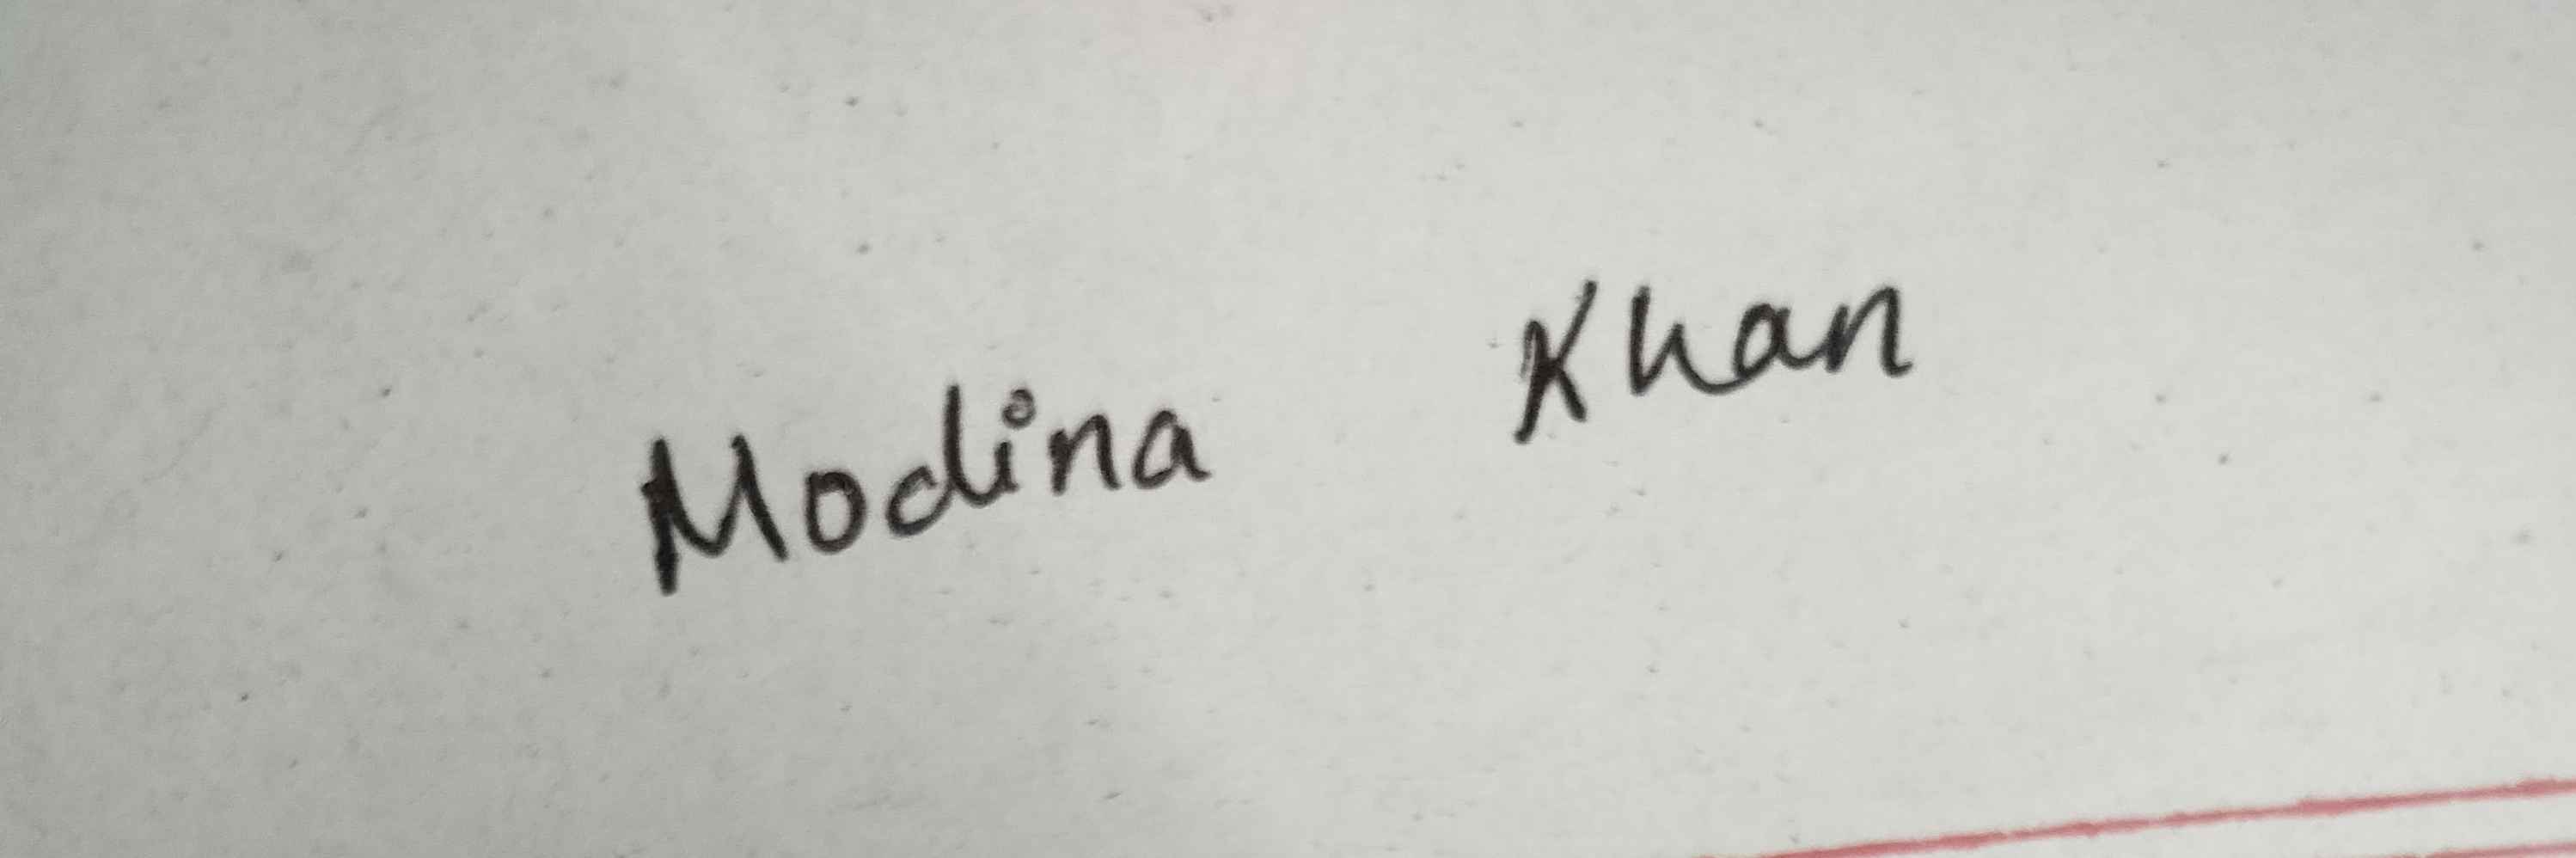 Modina Khan